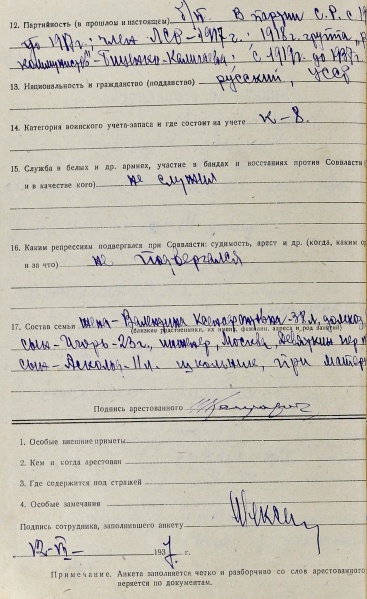 12. Партийность (в прошлом и настоящем) б/п. В партии С.Р. с 19
до 1917г.; член ЛСР – 1917г.; 1918г. группа
коммунистов"; с 1919г. до 1937г.
13. Национальность и гражданство (подданство) русский, УССР
14. Категория воинского учета-запаса и где состоит на учете К-8.
15. Служба в белых и др. армиях, участие в бандах и восстаниях против Соввласти
и в качестве кого) не служил
16. Каким репрессиям подвергался при Соввласти: судимость, арест и др. (когда, каким ор
и за что) не подвергался
17. Состав семьи жена – Валентина 38 л. домхоз
(близкие родственники, их имена, фамилии, адреса и род занятий)
сын – Игорь – 23 г., инженер, Москва, пер.
сын – Аскольд – 11 л. школьник, при матери
Подпись арестованного
1. Особые внешние приметы
2. Кем и когда арестован
3. Где содержится под стражей
4. Особые замечания
Подпись сотрудника, заполнившего анкету
12 – VI – 1937 г.
Примечание. Анкета заполняется четко и разборчиво со слов арестованного
веряется по документам.